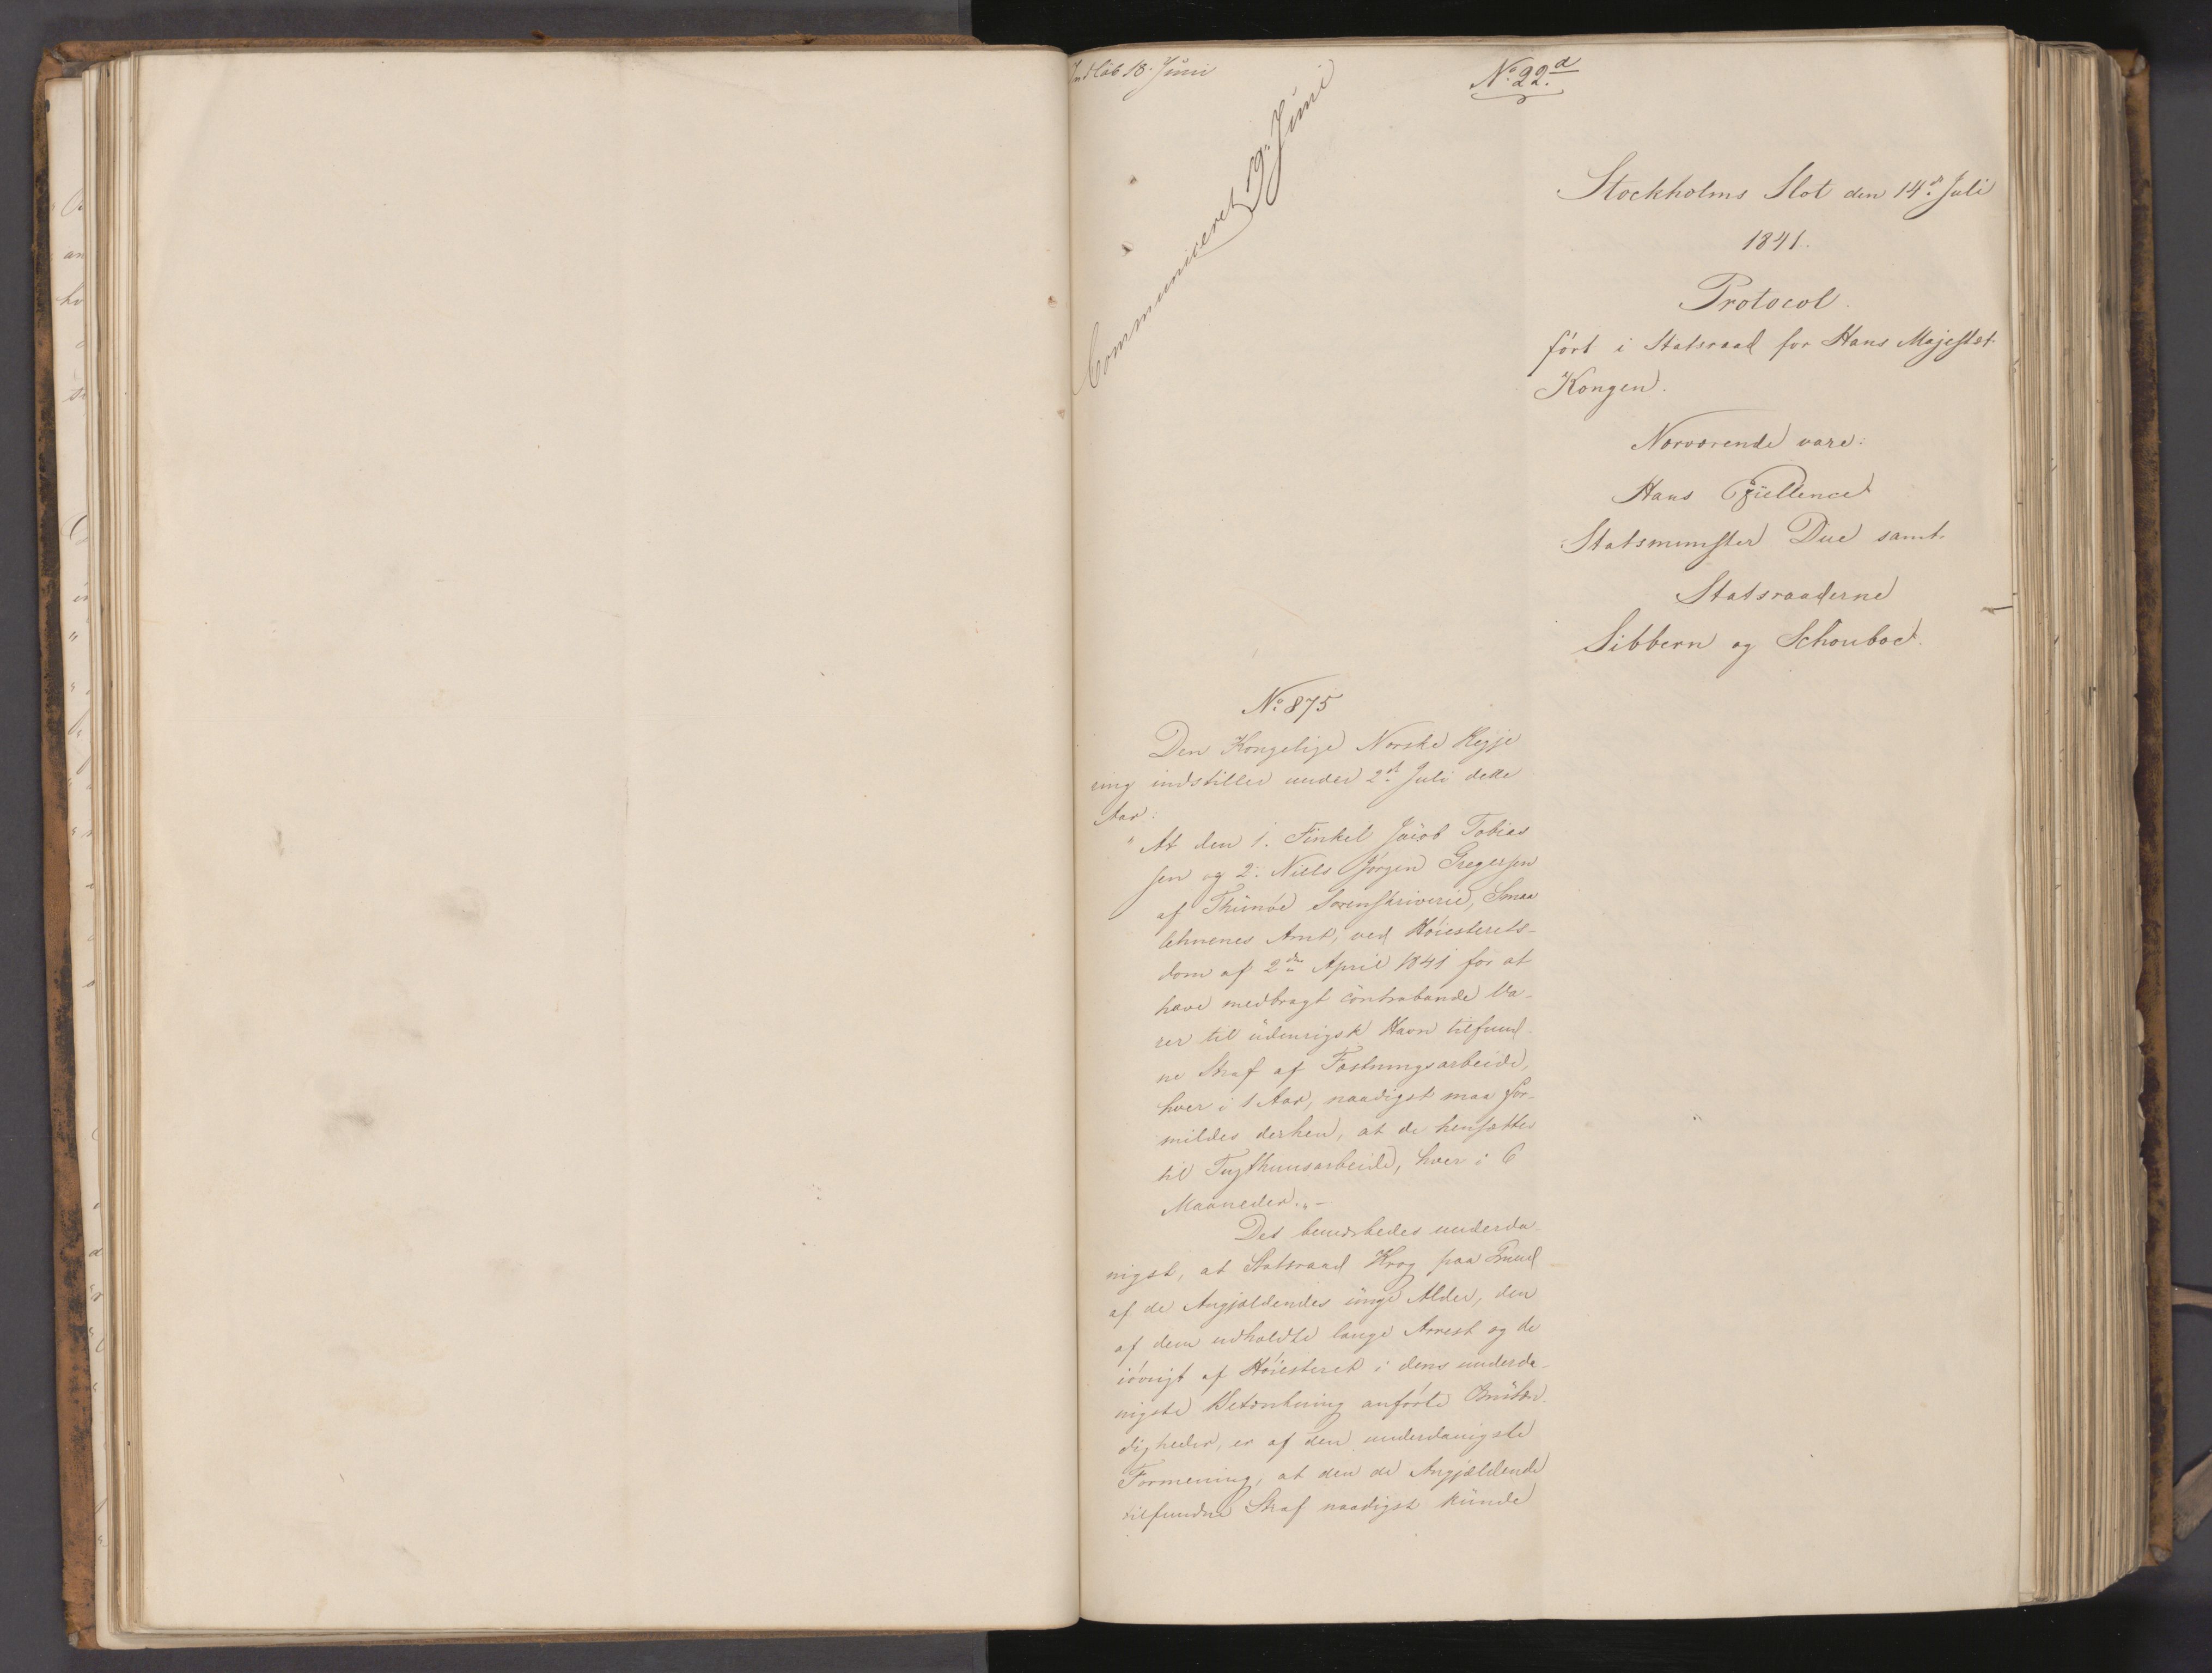 Indløb 18. Juni
Communiceret 19. Juni
No. 22.a
Stockholms Slot den 14d. Juli
1841.
Protocol.
ført i Statsraad for Hans Majestæt
Kongen.
Nærværende vare:
Hans Excellence
Statsminister Due samt
Statsraaderne
Sibbern og Schouboe.
No. 875
Den Kongelige Norske Regje
ring indstiller under 2d. Juli dette
Aar:
"At den 1. Finkel Jacob Tobias
sen og 2. Niels Jørgen Gregersen
af Thunøe Sorenskriverie, Smaa
lehnenes Amt, ved Høiesterets-
dom af 2den April 1841 for at
have medbragt contrabande Va-
rer til udenrigsk Havn tilfund-
ne Straf af Fæstningsarbeide,
hver i 1 Aar, naadigst maa for-
mildes derhen, at de hensættes
til Tugthuusarbeide, hver i 6
Maaneder." -
Det bemærkedes underda-
nigst, at Statsraad Krog paa Grund
af de Angjældendes unge Alder, den
af dem udholdte lange Arrest og de
iøvrigt af Høiesteret i dens underda-
nigste Betænkning anførte Omstæn-
digheder, er af den underdanigste
Formening, at den de Angjældende
tilfundne Straf naadigst kunde